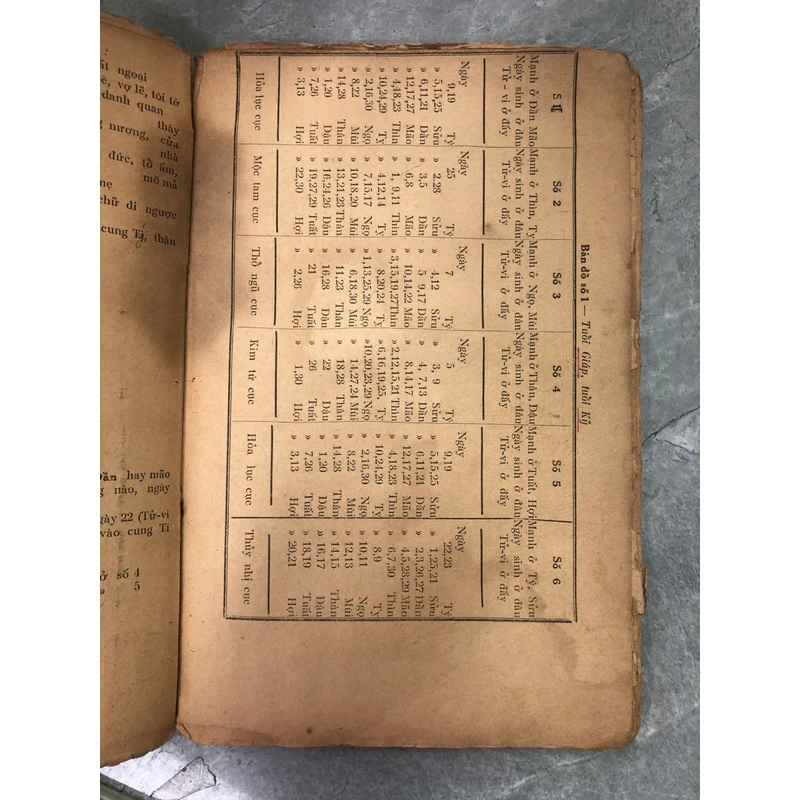 ất ngoại
è, vợ lẽ, tôi tớ
danh quan
thày
g nương, cửa
nhà
đức, tổ ấm,
mồ mả
mẹ
chữ đi ngược
cung Tí, thân
Dần hay mão
g nào, ngày
gày 22 (Tử-vi
vào cung Tí
ở số 4
» 5
Bản đồ số 1 — Tuổi Giáp, tuổi Kỷ
Số 1
Mạnh ở Dần Mão
Ngày sinh ở đâu
Tử-vi ở đấy
Ngày 9,19 Tý
» 5,15,25 Sửu
» 6,11,21 Dần
» 12,17,27 Mão
» 4,18,23 Thìn
» 10,24,29 Tỵ
» 2,16,30 Ngọ
» 8,22 Mùi
» 14,28 Thân
» 1,20 Dậu
» 7,26 Tuất
» 3,13 Hợi
Hỏa lục cục
Số 2
Mạnh ở Thìn, Tỵ
Ngày sinh ở đâu
Tử-vi ở đấy
Ngày 25 Tý
» 2,28 Sửu
» 3,5 Dần
» 6,8 Mão
» 1, 9,11 Thìn
» 4,12,14 Tỵ
» 7,15,17 Ngọ
» 10,18,20 Mùi
» 13,21,23 Thân
» 16,24,26 Dậu
» 19,27,29 Tuất
» 22,30 Hợi
Mộc tam cục
Số 3
Mạnh ở Ngọ, Mùi
Ngày sinh ở đâu
Tử-vi ở đấy
Ngày 7 Tý
» 4,12 Sửu
» 5 9,17 Dần
» 10,14,22 Mão
» 3,15,19,27 Thìn
» 8,20,24 Tỵ
» 1,13,25,29 Ngọ
» 6,18,30 Mùi
» 11,23 Thân
» 16,28 Dậu
» 21 Tuất
» 2,26 Hợi
Thổ ngũ cục
Số 4
Mạnh ở Thân, Dậu
Ngày sinh ở đâu
Tử-vi ở đấy
Ngày 5 Tý
» 3, 9 Sửu
» 4, 7,13 Dần
» 8,14,17 Mão
» 2,12,15,21 Thìn
» 6,16,19,25, Tỵ
»10,20,23,29 Ngọ
» 14,27,24 Mùi
» 18,28 Thân
» 22 Dậu
» 26 Tuất
» 1,30 Hợi
Kim tứ cục
Số 5
Mạnh ở Tuất, Hợi
Ngày sinh ở đâu
Tử-vi ở đấy
Ngày 9,19 Tý
» 5,15,25 Sửu
» 6,11,21 Dần
» 12,17,27 Mão
» 4,18,23 Thìn
» 10,24,29 Tỵ
» 2,16,30 Ngọ
» 8,22 Mùi
» 14,28 Thân
» 1,20 Dậu
» 7,26 Tuất
» 3,13 Hợi
Hỏa lục cục
Số 6
Mạnh ở Tý, Sửu
Ngày sinh ở đâu
Tử-vi ở đấy
Ngày 22,23 Tý
» 1,25,21 Sửu
» 2,3,26,27 Dần
» 4,5,28,29 Mão
» 6,7,30 Thìn
» 8,9 Tỵ
» 10,11 Ngọ
» 12,13 Mùi
» 14,15 Thân
» 16,17 Dậu
» 18,19 Tuất
» 20,21 Hợi
Thủy nhị cục